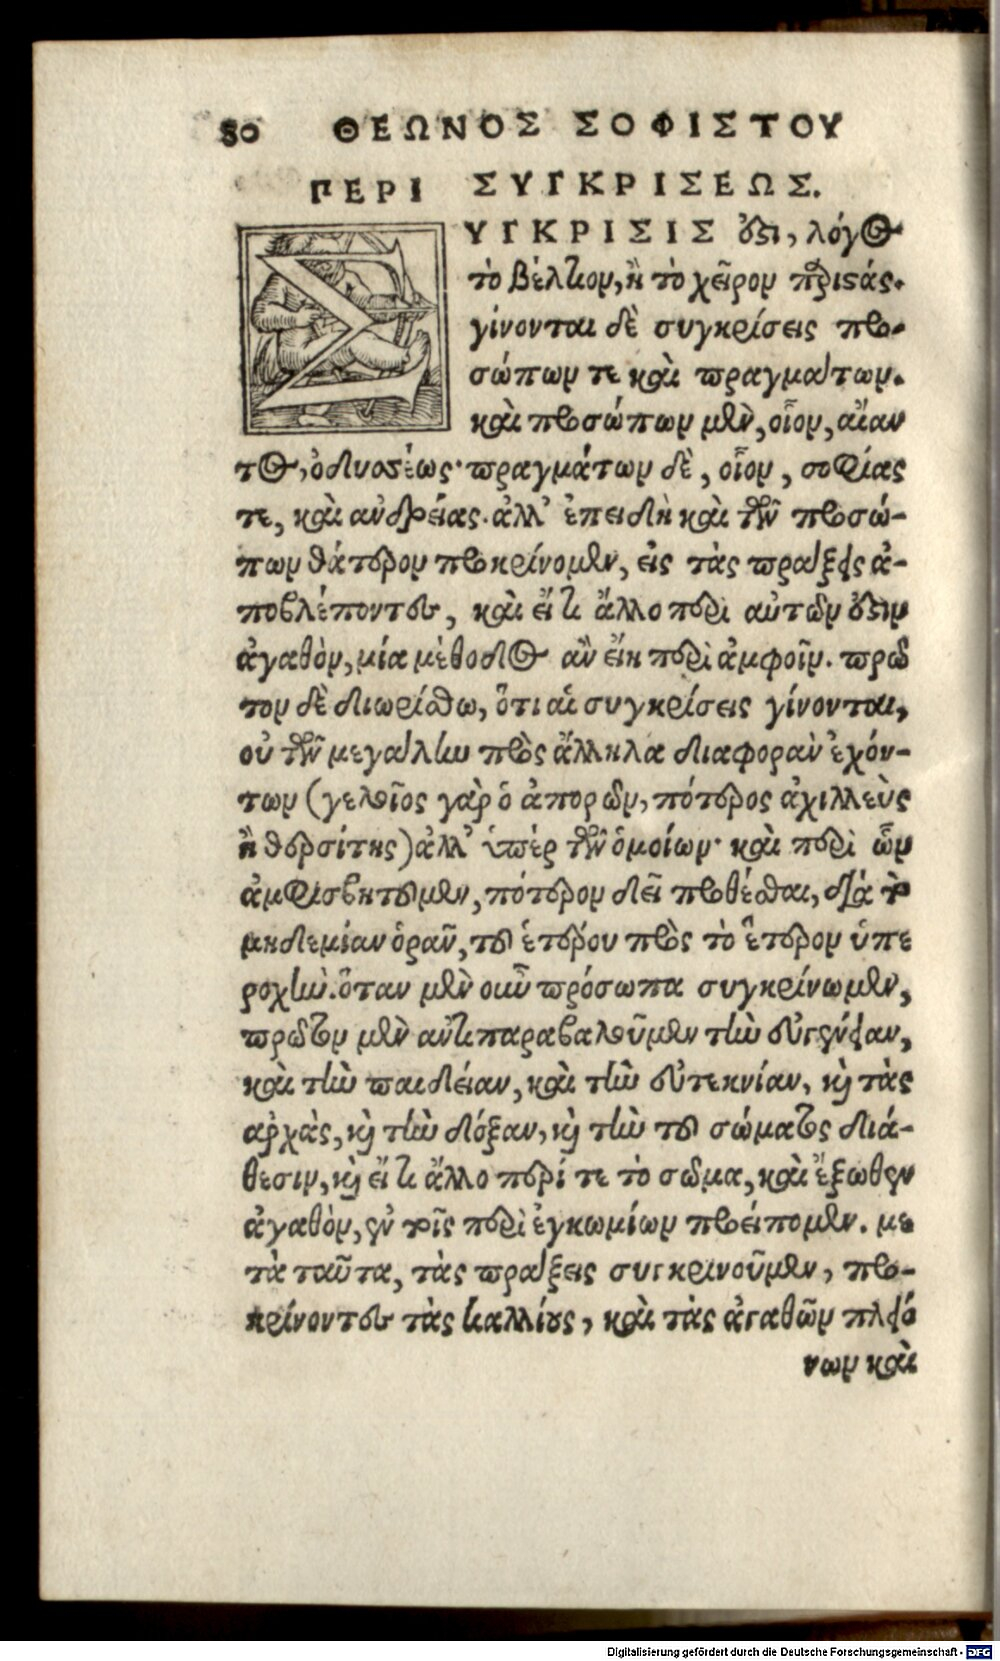 80 ΘΕΩΝΟΣ ΣΟΦΙΣΤΟΥ
ΠΕΡΙ ΣΥΓΚΡΙΣΕΩΣ.
ΣΥΓΚΡΙΣΙΣ ὅςι, λόγος
τὸ βέλτιον, ἢ τὸ χεῖρον παριςάς.
γίνονται δὲ συγκρίσεις προ-
σώπων τε καὶ πραγμάτων.
καὶ προσώπων μὲν, οἷον, αἴαν
τος, ὀδυοσέως· πραγμάτων δὲ, οἷον, σοφίας
τε, καὶ ανδρείας. ἀλλ’ ἐπειδὴ καὶ τῶν προσώ-
πων θάτερον προκρίνομεν, εἰς τὰς πράξεις ἀ-
ποβλέποντες, καὶ εἴ τι ἄλλο περὶ αὐτῶν ὅςιν
ἀγαθὸν, μία μέθοδος ἂν εἴη περὶ ἀμφοῖν. πρῶ
τον δὲ διωρίσθω, ὅτι αἱ συγκρίσεις γίνονται,
οὐ τῶν μεγάλην πρὸς ἄλληλα διαφορὰν ἐχόν-
των (γελοῖος γὰρ ὁ ἀπορῶν, πότερος ἀχιλλεὺς
ἢ θερσίτης) ἀλλ’ ὑπὲρ τῶν ὁμοίων· καὶ περὶ ὧν
ἀμφισβητοῦμεν, πότερον δεῖ προθέσθαι, διὰ τὸ
μηδεμίαν ὁρᾶν, τοῦ ἑτέρου πρὸς τὸ ἕτερον ὑπε
ροχὴν. ὅταν μὲν οὖν πρόσωπα συγκρίνωμεν,
πρῶτον μὲν αντιπαραβαλοῦμεν τὴν εὐγένειαν,
καὶ τὴν παιδείαν, καὶ τὴν εὐτεκνίαν, καὶ τὰς
αρχὰς, καὶ τὴν δόξαν, καὶ τὴν τοῦ σώματος διά-
θεσιν, καὶ εἴ τι ἄλλο περί τε τὸ σῶμα, καὶ ἔξωθεν
ἀγαθὸν, ἐν τοῖς περὶ ἐγκωμίων προείπομεν. με
τὰ ταῦτα, τὰς πράξεις συγκρινοῦμεν, προ-
κρίνοντες τὰς καλλίους, καὶ τὰς ἀγαθῶν πλειό
νων καὶ
Digitalisierung gefördert durch die Deutsche Forschungsgemeinschaft - DFG